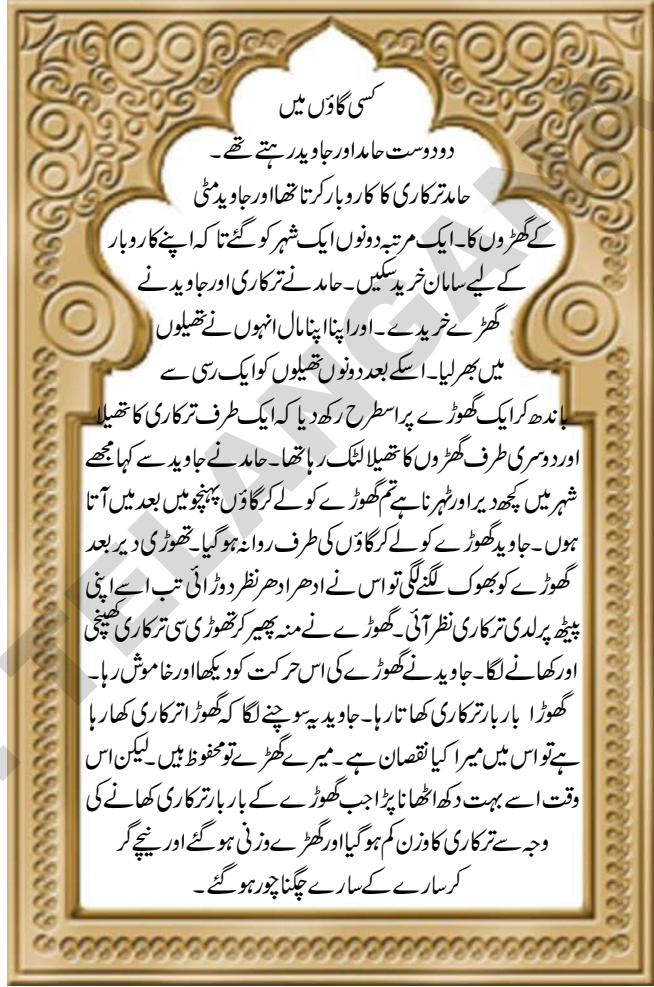 کسی گاؤں میں
دو دوست حامد اور جاوید رہتے تھے۔
حامد ترکاری کا کاروبار کرتا تھا اور جاوید مٹی
کے گھڑوں کا۔ ایک مرتبہ دونوں ایک شہر کو گئے تا کہ اپنے کاروبار
کے لیے سامان خرید سکیں۔ حامد نے ترکاری اور جاوید نے
گھڑے خریدے۔ اور اپنا اپنا مال انہوں نے تھیلوں
میں بھر لیا۔ اسکے بعد دونوں تھیلوں کو ایک رسی سے
باندھ کر ایک گھوڑے پر اسطرح رکھ دیا کہ ایک طرف ترکاری کا تھیلا
اور دوسری طرف گھڑوں کا تھیلا لٹک رہا تھا۔ حامد نے جاوید سے کہا مجھے
شہر میں کچھ دیر اور ٹہرنا ہے تم گھوڑے کو لے کر گاؤں پہنچو میں بعد میں آتا
ہوں۔ جاوید گھوڑے کو لے کر گاؤں کی طرف روانہ ہو گیا۔ تھوڑی دیر بعد
گھوڑے کو بھوک لگنے لگی تو اس نے ادھر ادھر نظر دوڑائی تب اسے اپنی
پیٹھ پر لدی ترکاری نظر آئی۔ گھوڑے نے منہ پھیر کر تھوڑی سی ترکاری کھینچی
اور کھانے لگا۔ جاوید نے گھوڑے کی اس حرکت کو دیکھا اور خاموش رہا۔
گھوڑا بار بار ترکاری کھاتا رہا۔ جاوید یہ سوچنے لگا کہ گھوڑا ترکاری کھا رہا
ہے تو اس میں میرا کیا نقصان ہے۔ میرے گھڑے تو محفوظ ہیں۔ لیکن اس
وقت اسے بہت دکھ اٹھانا پڑا جب گھوڑے کے بار بار ترکاری کھانے کی
وجہ سے ترکاری کا وزن کم ہو گیا اور گھڑے وزنی ہو گئے اور نیچے گر
کر سارے کے سارے چکنا چور ہو گئے۔
TELANGANA